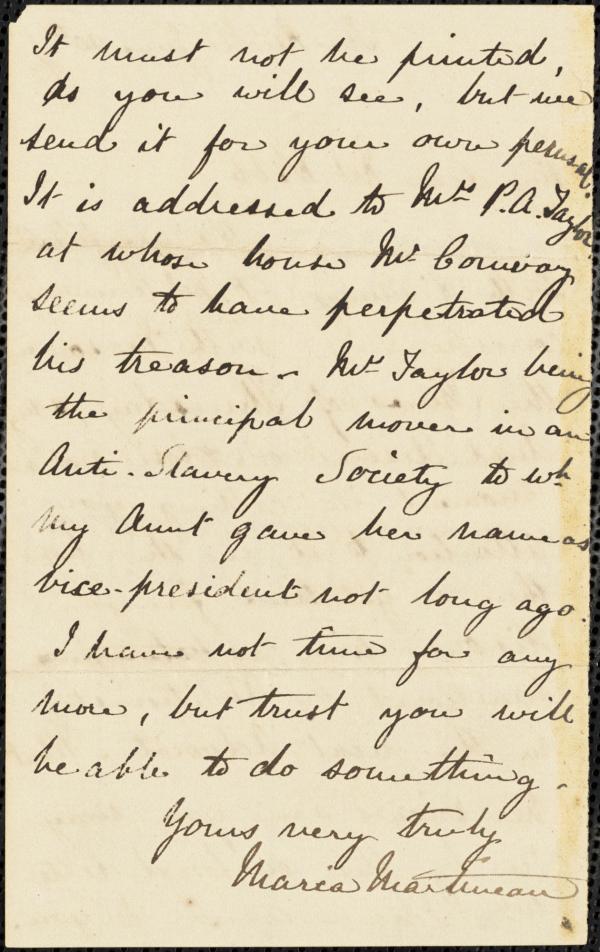 It must not be printed,
as you will see, but we
send it for your own perusal.
It is addressed to Mrs P.A. Taylor
at whose house Mr Conway
seems to have perpetrated
his treason - Mrs Taylor being
the principal mover in an
Anti-Slavery Society to wh
my Aunt gave her name as
vice-president not long ago.
I have not time for any
more, but trust you will
be able to do something.
Yours very truly
Maria Martineau